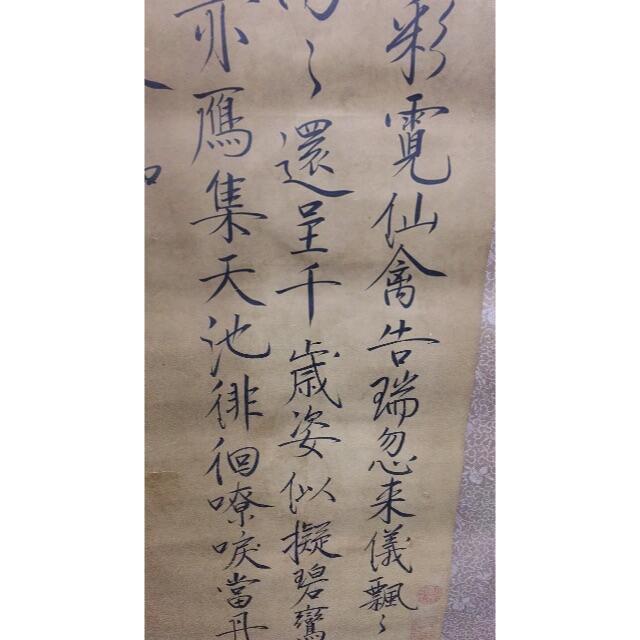 彩霓仙禽告瑞忽来儀飄〻
〻還呈千歲姿似擬碧鸞
亦鴈集天池徘徊嘹唳當丹